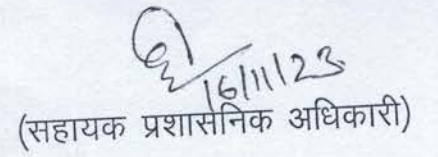 16/11/23
(सहायक प्रशासनिक अधिकारी)